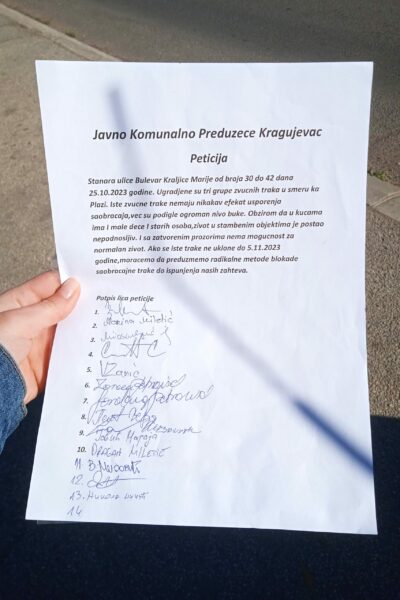 Javno Komunalno Preduzece Kragujevac
Peticija
Stanara ulice Bulevar Kraljice Marije od braja 30 do 42 dana
25.10.2023 godine. Ugradjene su tri grupe zvucnih traka u smeru ka
Plazi. Iste zvucne trake nemaju nikakav efekat usporenja
saobracaja,vec su podigle ogroman nivo buke. Obzirom da u kucama
ima I male dece I starih osoba,zivot u stambenim objektima je postao
nepodnosljiv. I sa zatvorenim prozorima nema mogucnost za
normalan zivot. Ako se iste trake ne uklone do 5.11.2023
godine,moracemo da preduzmemo radikalne metode blokade
saobracajne trake do ispunjenja nasih zahteva.
Potpis lica peticije
1.
2. Marina Miletić
3.
4.
5.
6.
7.
8.
9.
10. DRAGAN MILETIĆ
11.
12.
13.
14